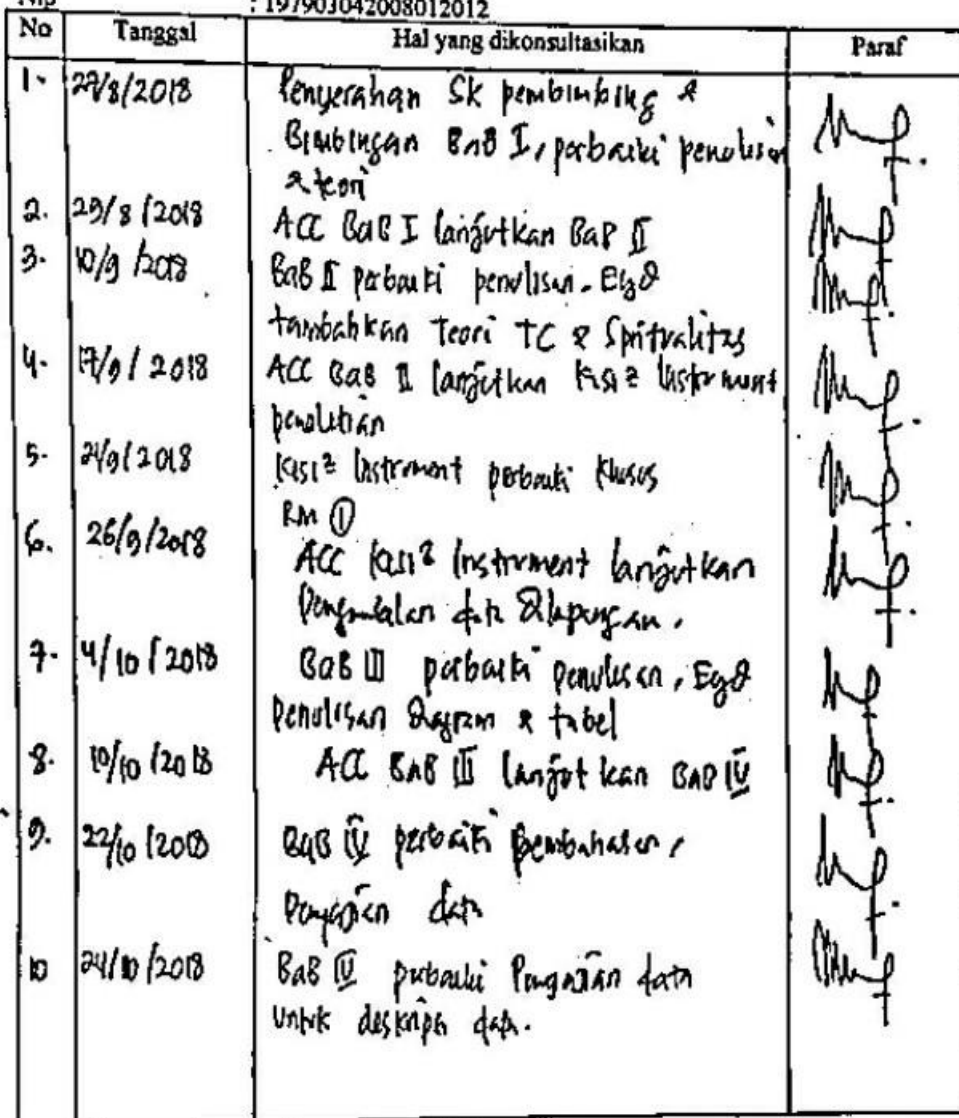 : 197903042008012012
No Tanggal Hal yang dikonsultasikan Paraf
1. 27/8/2018 Penyerahan Sk pembimbing &
Bimbingan BAB I, perbaiki penulisan
& teori
2. 29/8/2018 ACC BaB I lanjutkan BaB II
3. 10/9/2018 BaB II perbaiki penulisan. EyD
tambahkan Teori TC & Spritualitas
4. 17/9/2018 ACC BaB II lanjutkan kisi2 Instrument
penelitian
5. 24/9/2018 kisi2 Instrument perbaiki khusus
RM 1
6. 26/9/2018 ACC kisi2 Instrument lanjutkan
Pengambilan data dilapangan.
7. 4/10/2018 BaB III perbaiki penulisan, EyD
Penulisan Diagram & tabel
8. 10/10/2018 ACC BAB III lanjutkan BAB IV
9. 22/10/2018 BaB IV perbaiki pembahasan,
Penyajian data
10 24/10/2018 BaB IV perbaiki Penyajian data
untuk deskripsi data.